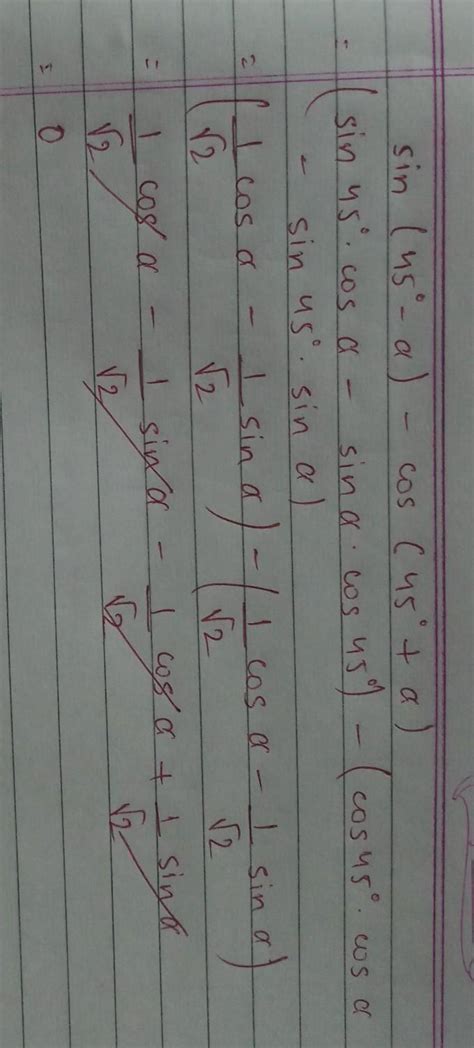 sin (45° - α) - cos (45° + α)
= (sin 45° · cos α - sin α · cos 45°) - (cos 45° · cos α
- sin 45° · sin α)
= (1/√2 cos α - 1/√2 sin α) - (1/√2 cos α - 1/√2 sin α)
= 1/√2 cos α - 1/√2 sin α - 1/√2 cos α + 1/√2 sin α
= 0